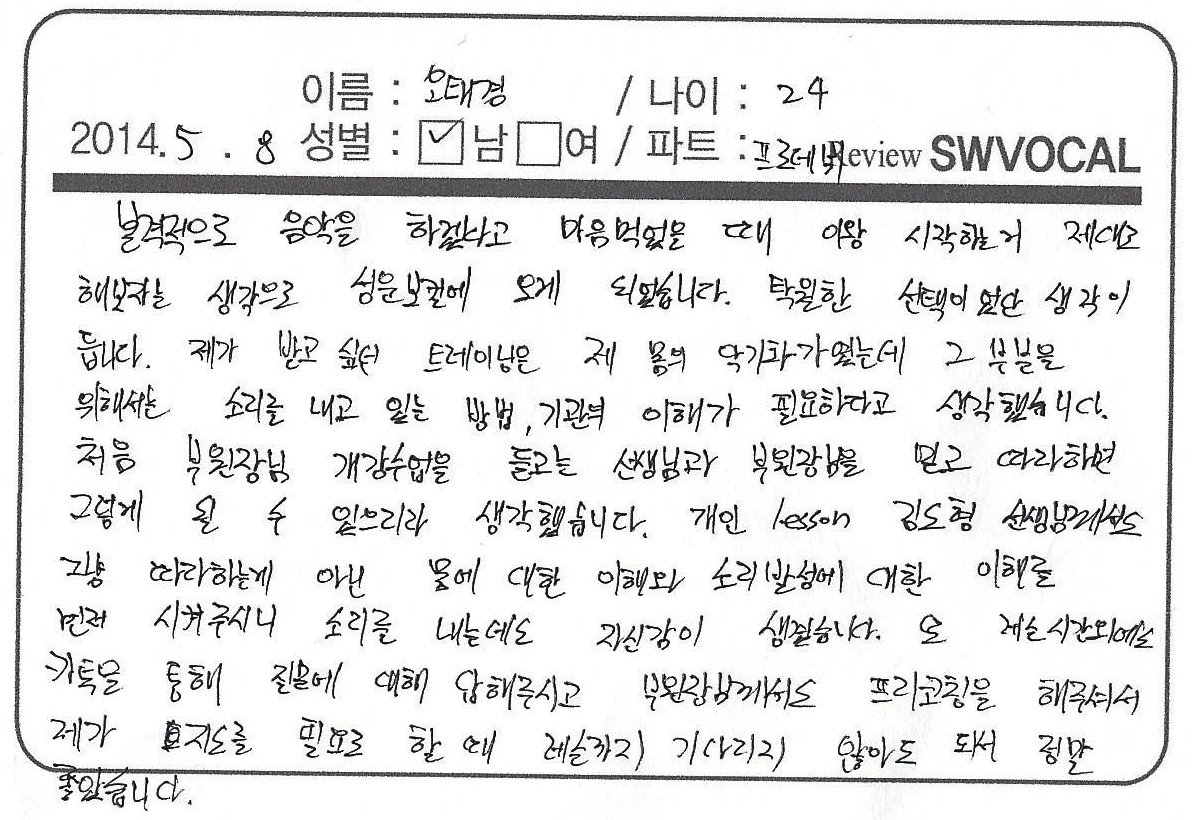 이름 : 오태경 / 나이 : 24
2014.5.8 성별 : ✓남 □여 / 파트 : 프로데뷔 Review SWVOCAL
본격적으로 음악을 하겠다고 마음먹었을 때 이왕 시작하는거 제대로
해보자는 생각으로 성운보컬에 오게 되었습니다. 탁월한 선택이었단 생각이
듭니다. 제가 받고 싶던 트레이닝은 제 몸의 악기화가였는데 그 부분을
위해서는 소리를 내고 있는 방법, 기관의 이해가 필요하다고 생각했습니다.
처음 부원장님 개강수업을 듣고는 선생님과 부원장님을 믿고 따라하면
그렇게 될 수 있으리라 생각했습니다. 개인 lesson 김도형 선생님께서도
그냥 따라하는게 아닌 몸에 대한 이해와 소리발성에 대한 이해를
먼저 시켜주시니 소리를 내는데도 자신감이 생겼습니다. 또 레슨시간외에도
카톡을 통해 질문에 대해 답해주시고 부원장님께서도 프리코칭을 해주셔서
제가 지도를 필요로 할 때 레슨까지 기다리지 않아도 되서 정말
좋았습니다.